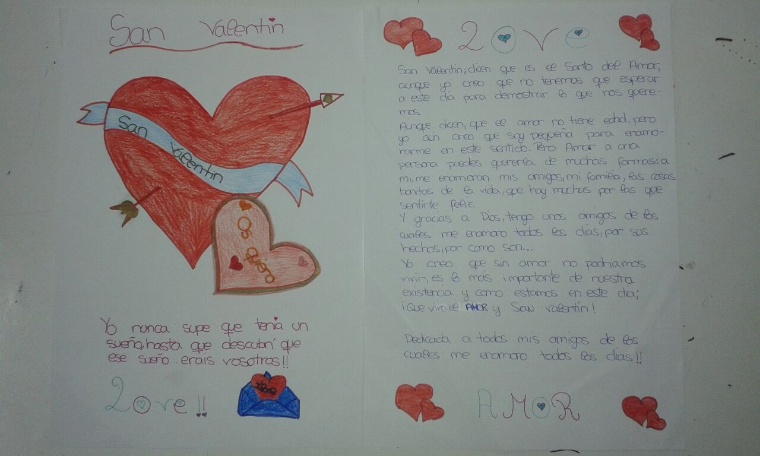 San Valentín
San Valentín
Os quiero
Yo nunca supe que tenía un
sueño, hasta que descubrí que
ese sueño erais vosotros!!
Love!!
Love
San Valentín, dicen que es el Santo del Amor,
aunque yo creo que no tenemos que esperar
a este día para demostrar lo que nos quere-
mos.
Aunque dicen, que el amor no tiene edad, pero
yo aún creo que soy pequeña para enamo-
rarme en este sentido. Pero Amor a una
persona puedes quererla de muchas formas: a
mi, me enamoran mis amigos, mi familia, las cosas
bonitas de la vida, que hay muchas por las que
sentirte feliz.
Y gracias a Dios, tengo unos amigos de los
cuales me enamoro todos los días, por sus
hechos, por como son...
Yo creo que sin amor no podríamos
vivir, es lo más importante de nuestra
existencia y como estamos en este día;
¡Que viva el AMOR y San Valentín!
Dedicada a todos mis amigos de los
cuales me enamoro todos los días!!
AMOR